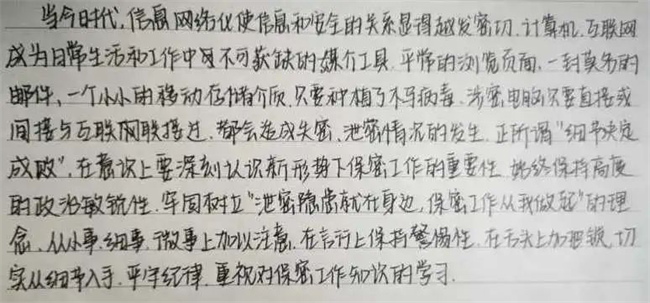 当今时代,信息网络化使信息和安全的关系显得越发密切.计算机.互联网
成为日常生活和工作中日不可获缺的媒介工具.平常的浏览页面.一封莫名的
邮件、一个小小的移动存储介质.只要种植了木马病毒.涉密电脑只要直接或
间接与互联网联接过.都会造成失密、泄密情况的发生.正所谓"细节决定
成败".在意识上要深刻认识新形势下保密工作的重要性.始终保持高度
的政治敏锐性.牢固树立"泄密隐患就在身边,保密工作从我做起"的理
念、从小事.细事.微事上加以注意.在言行上保持警惕性.在舌头上加把锁.切
实从细节入手.严守纪律.重视对保密工作知识的学习.